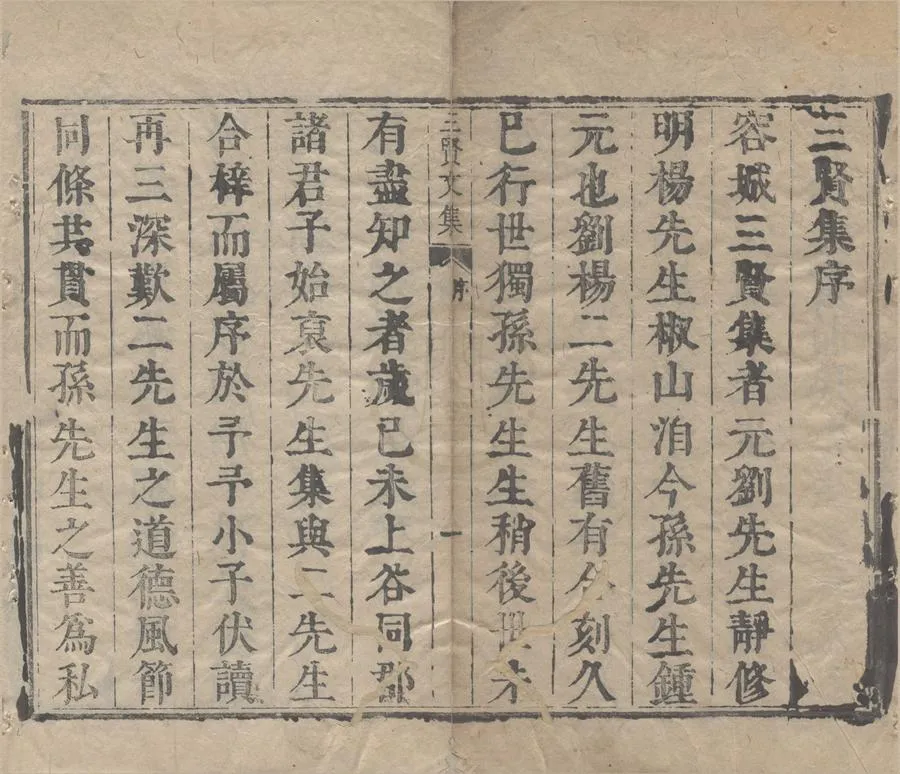 三賢集序
容城三賢集者元劉先生靜修
明楊先生椒山洎今孫先生鍾
元也劉楊二先生舊有合刻久
已行世獨孫先生生稍後世未
三賢文集 序 一
有盡知之者歲己未上谷同郡
諸君子始裒先生集與二先生
合梓而屬序於予予小子伏讀
再三深歎二先生之道德風節
同條共貫而孫先生之善爲私